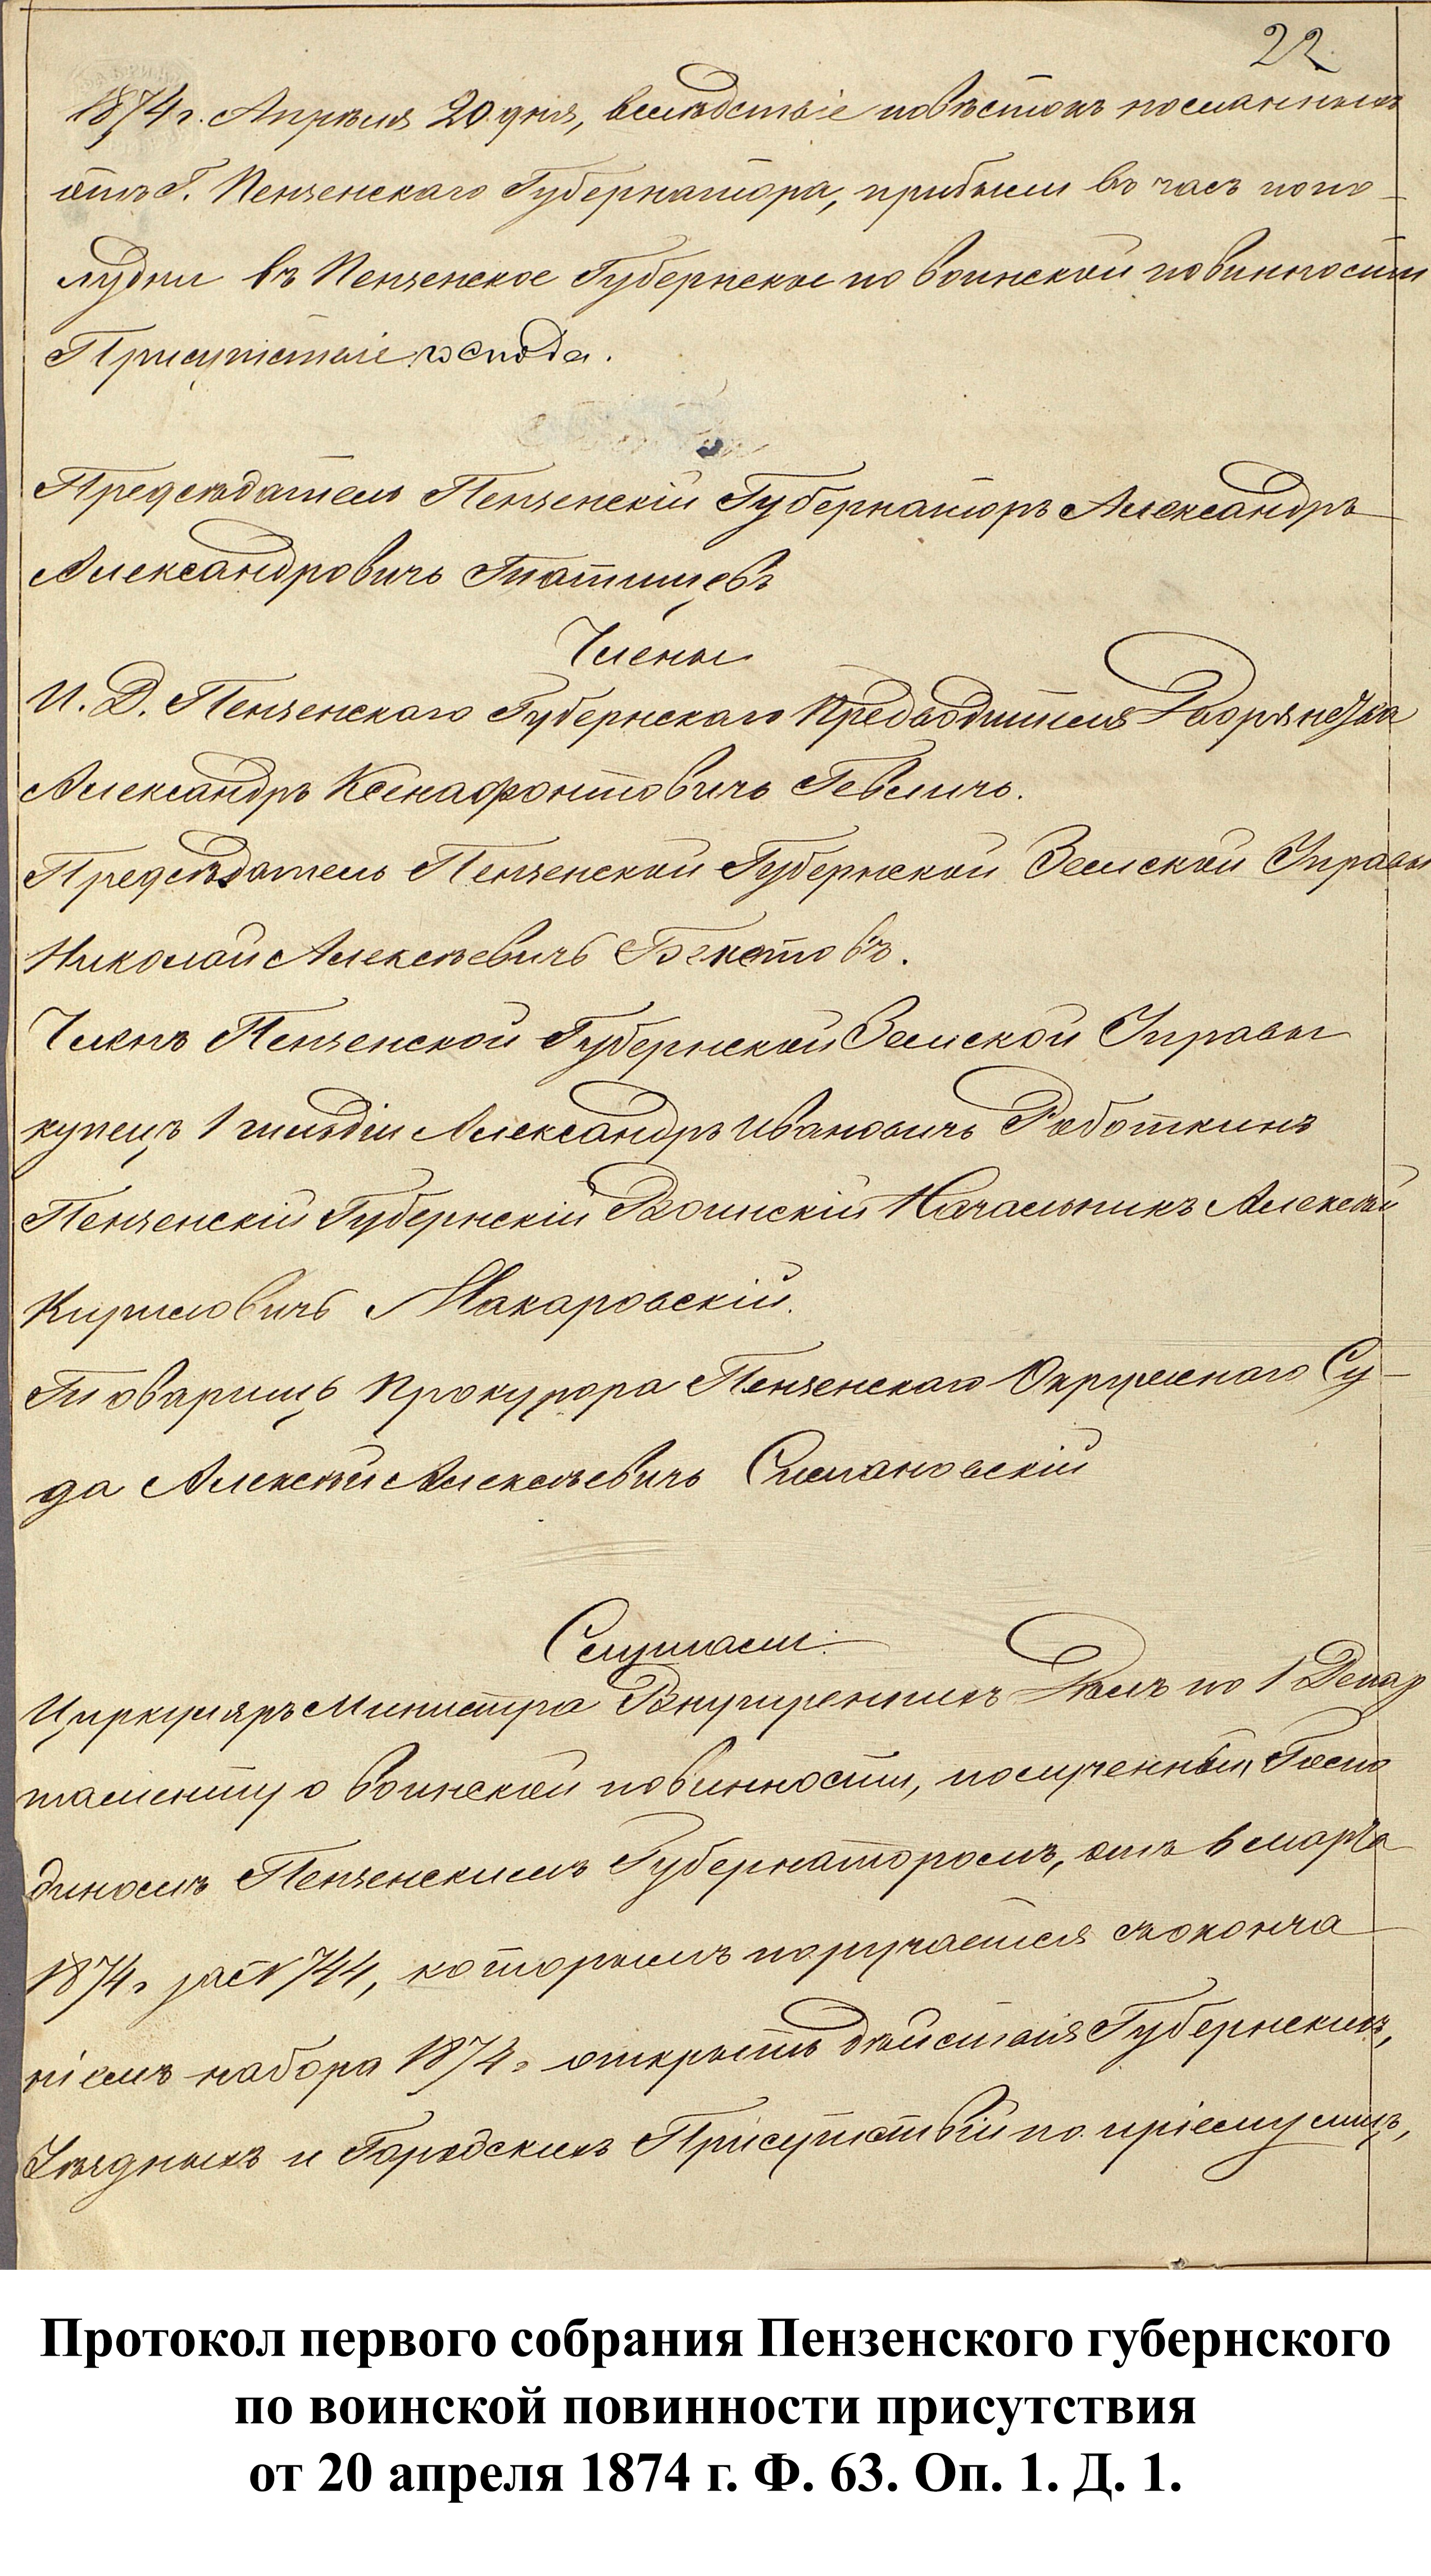 22
1874 г. Апрѣля 20 дня, вслѣдствіе повѣстокъ посланныхъ
отъ Г. Пензенскаго Губернатора, прибыли въ часъ попо-
лудни въ Пензенское Губернское по воинской повинности
Присутствіе господа.
Предсѣдатель Пензенскій Губернаторъ Александръ
Александровичъ Татищевъ
Члены
И. Д. Пензенскаго Губернскаго Предводителя Дворянства
Александръ Ксенофонтовичъ Гевличъ.
Предсѣдатель Пензенской Губернской Земской Управы
Николай Алексѣевичъ Бекетовъ.
Членъ Пензенской Губернской Земской Управы
купецъ 1 гильдіи Александръ Ивановичъ Работкинъ
Пензенскій Губернскій Воинскій Начальникъ Алексѣй
Кириловичъ Макаровскій.
Товарищъ Прокурора Пензенскаго Окружнаго Су-
да Алексѣй Алексѣевичъ
Слушали:
Циркуляръ Министра Внутреннихъ Дѣлъ по 1 Депар
таменту о воинской повинности, полученный Госпо
диномъ Пензенскимъ Губернаторомъ, отъ 6 марта
1874 г за № 744, которымъ поручается съ оконча
ніемъ набора 1874 г открыть дѣйствія Губернскихъ,
Уѣздныхъ и Городскихъ Присутствій по пріему лицъ,
Протокол первого собрания Пензенского губернского
по воинской повинности присутствия
от 20 апреля 1874 г. Ф. 63. Оп. 1. Д. 1.